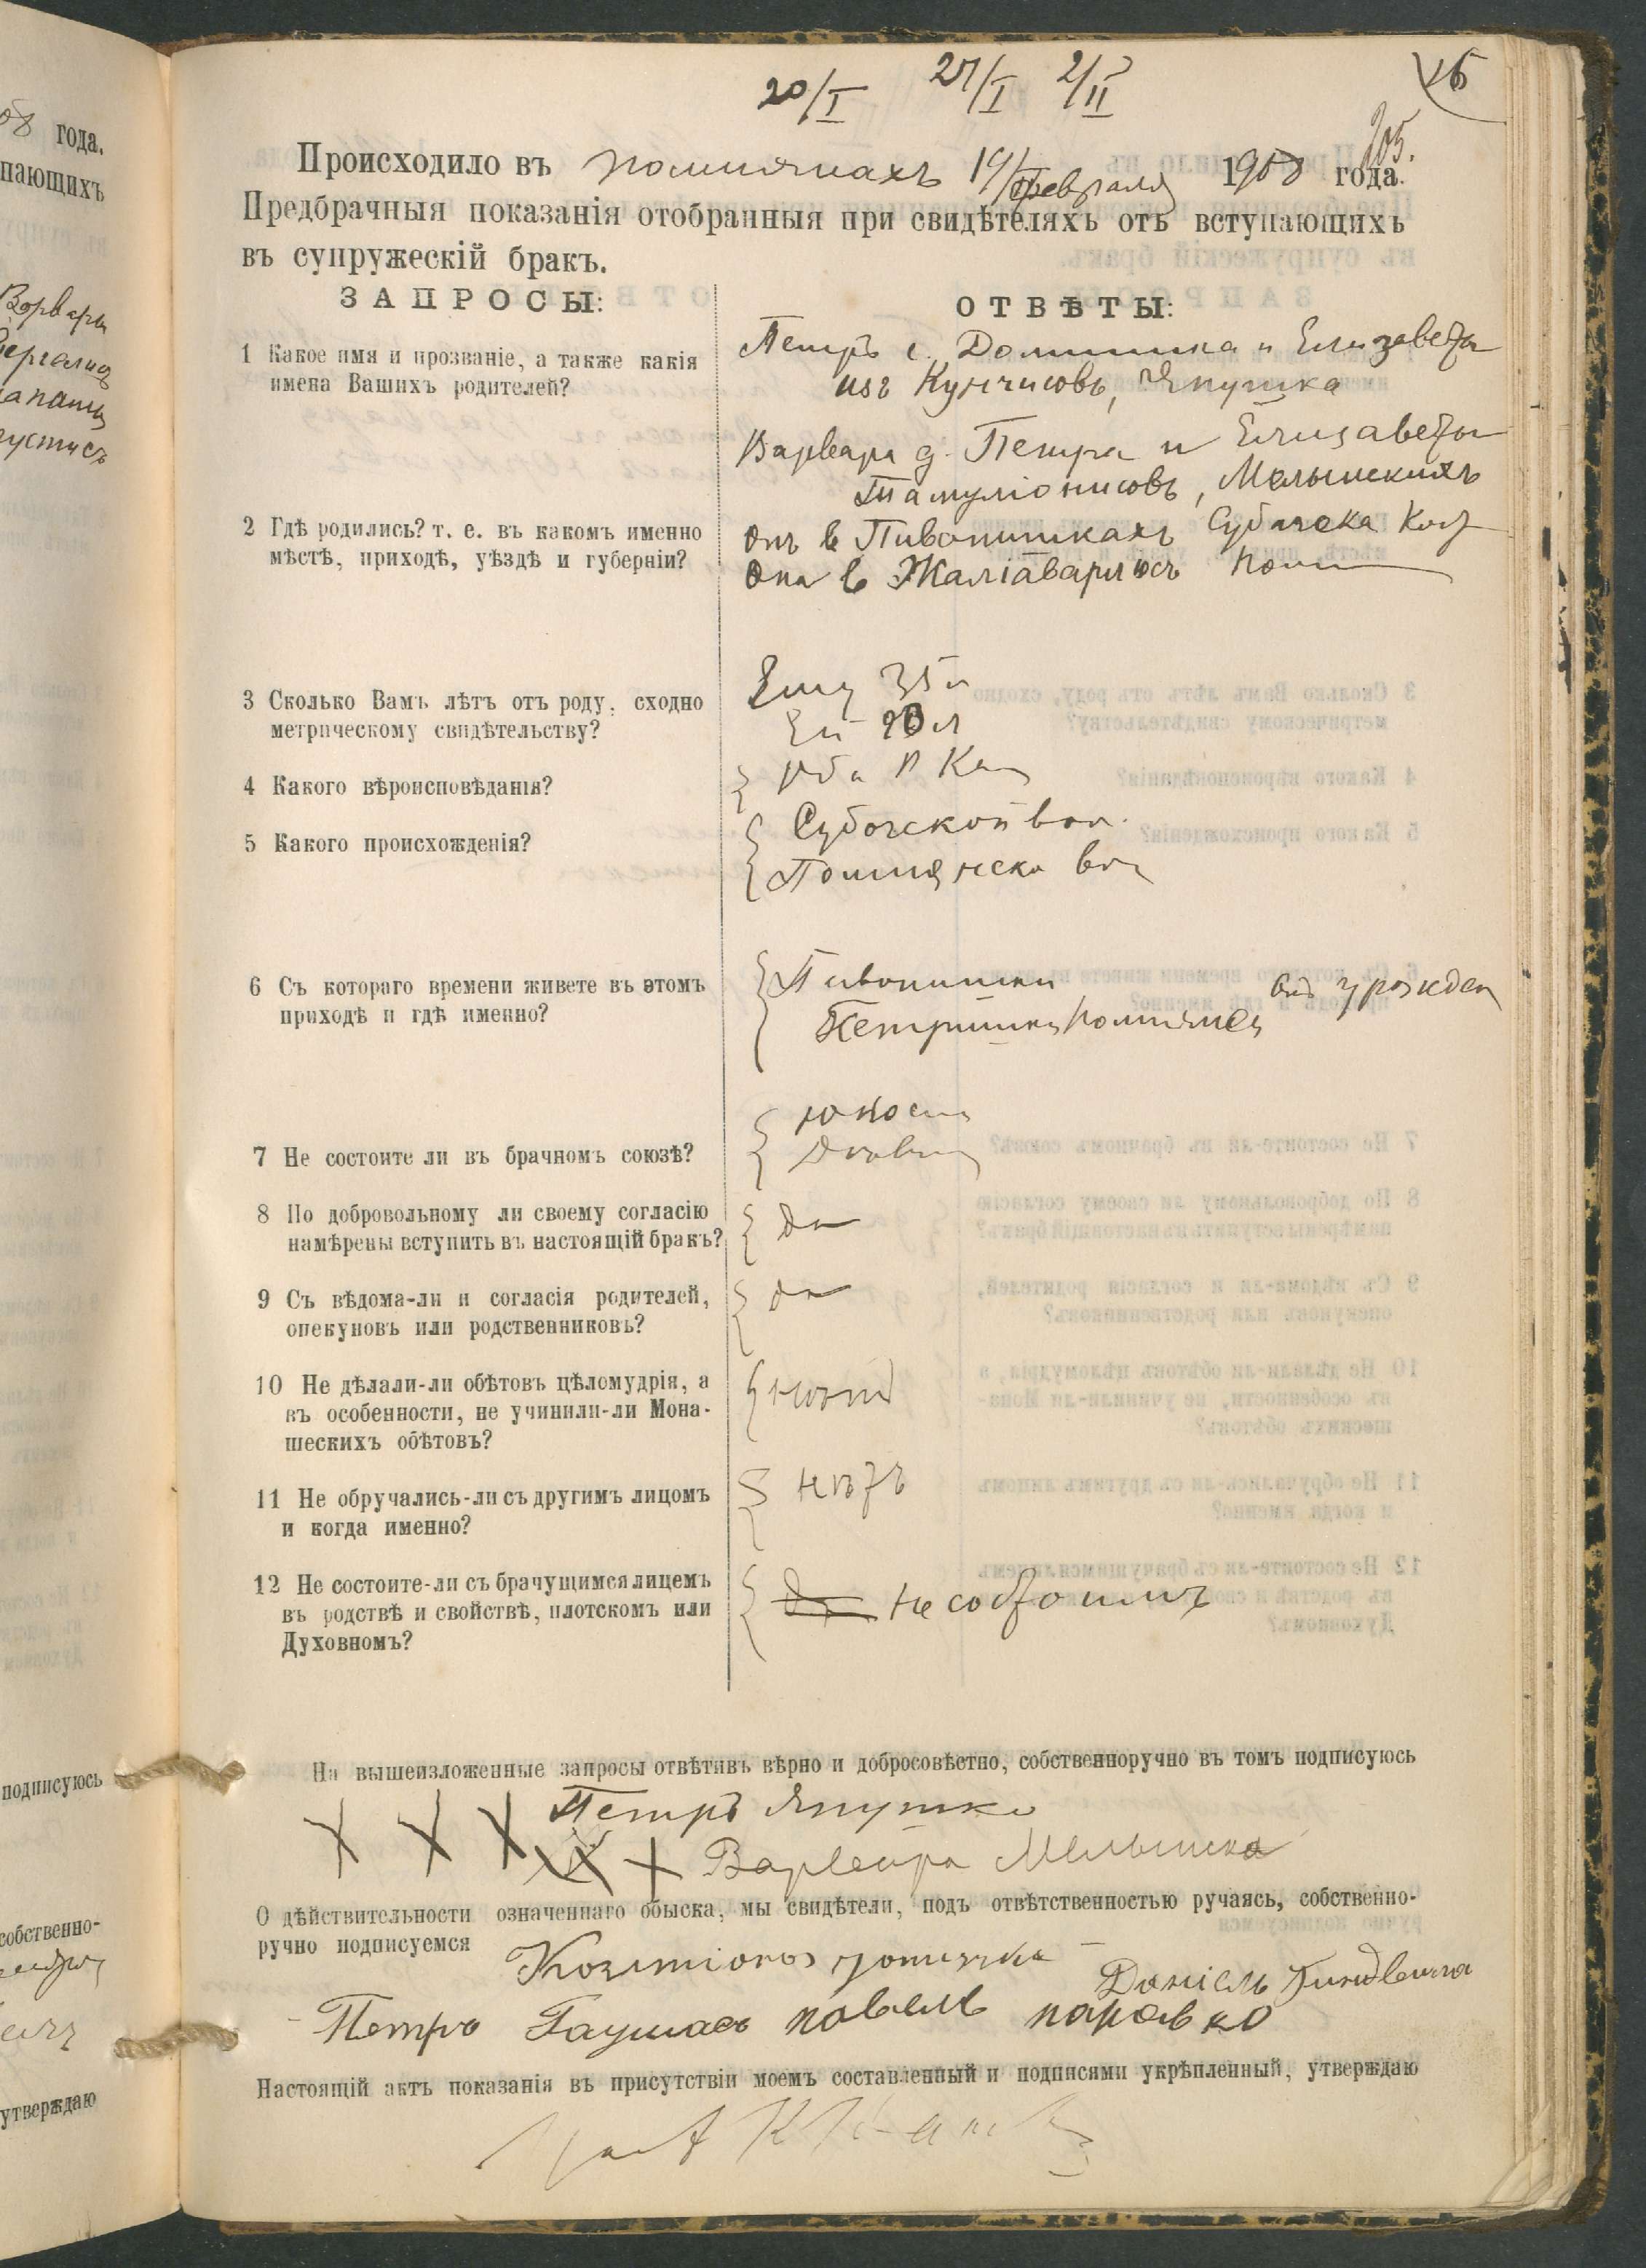 20/I 27/I 2/II
Происходило въ помпянахъ февраля 1908 года.
Предбрачныя показанія отобранныя при свидѣтеляхъ отъ вступающихъ
въ супружескій бракъ.
ЗАПРОСЫ:
1 Какое имя и прозваніе, а также какія
имена Вашихъ родителей?
2 Гдѣ родились? т. е. въ какомъ именно
мѣстѣ, приходѣ, уѣздѣ и губерніи?
3 Сколько Вамъ лѣтъ отъ роду, сходно
метрическому свидѣтельству?
4 Какого вѣроисповѣданія?
5 Какого происхожденія?
6 Съ котораго времени живете въ этомъ
приходѣ и гдѣ именно?
7 Не состоите ли въ брачномъ союзѣ?
8 По добровольному ли своему согласію
намѣрены вступить въ настоящій бракъ?
9 Съ вѣдома-ли и согласія родителей,
опекуновъ или родственниковъ?
10 Не дѣлали-ли обѣтовъ цѣломудрія, а
въ особенности, не учинили-ли Мона-
шескихъ обѣтовъ?
11 Не обручались-ли съ другимъ лицомъ
и когда именно?
12 Не состоите-ли съ брачущимся лицемъ
въ родствѣ и свойствѣ, плотскомъ или
Духовномъ?
ОТВѢТЫ:
Петръ с. Доминика и Елизаветы
изъ Кунчисовъ, Япушка
Варвара д. Петра и Елизаветы
Тамуліонисовъ, Мельинскихъ
Онъ в Пивонишкахъ Субочска
Она в
Ему 35 л
Ей л
Оба Р Ка
Субочской вол.
Помпянска вол
Пивонишки от урожден
Петришки
юноша
Да
да
нѣтъ
нѣтъ
не состоимъ
На вышеизложенные запросы отвѣтивъ вѣрно и добросовѣстно, собственноручно въ томъ подписуюсь
Х Х Х Петръ Япушка
ХХ + Варвара Мельинска
О дѣйствительности означеннаго обыска, мы свидѣтели, подъ отвѣтственностью ручаясь, собственно-
ручно подписуемся
Даніель
Петръ павелъ
Настоящій актъ показанія въ присутствіи моемъ составленный и подписями укрѣпленный, утверждаю